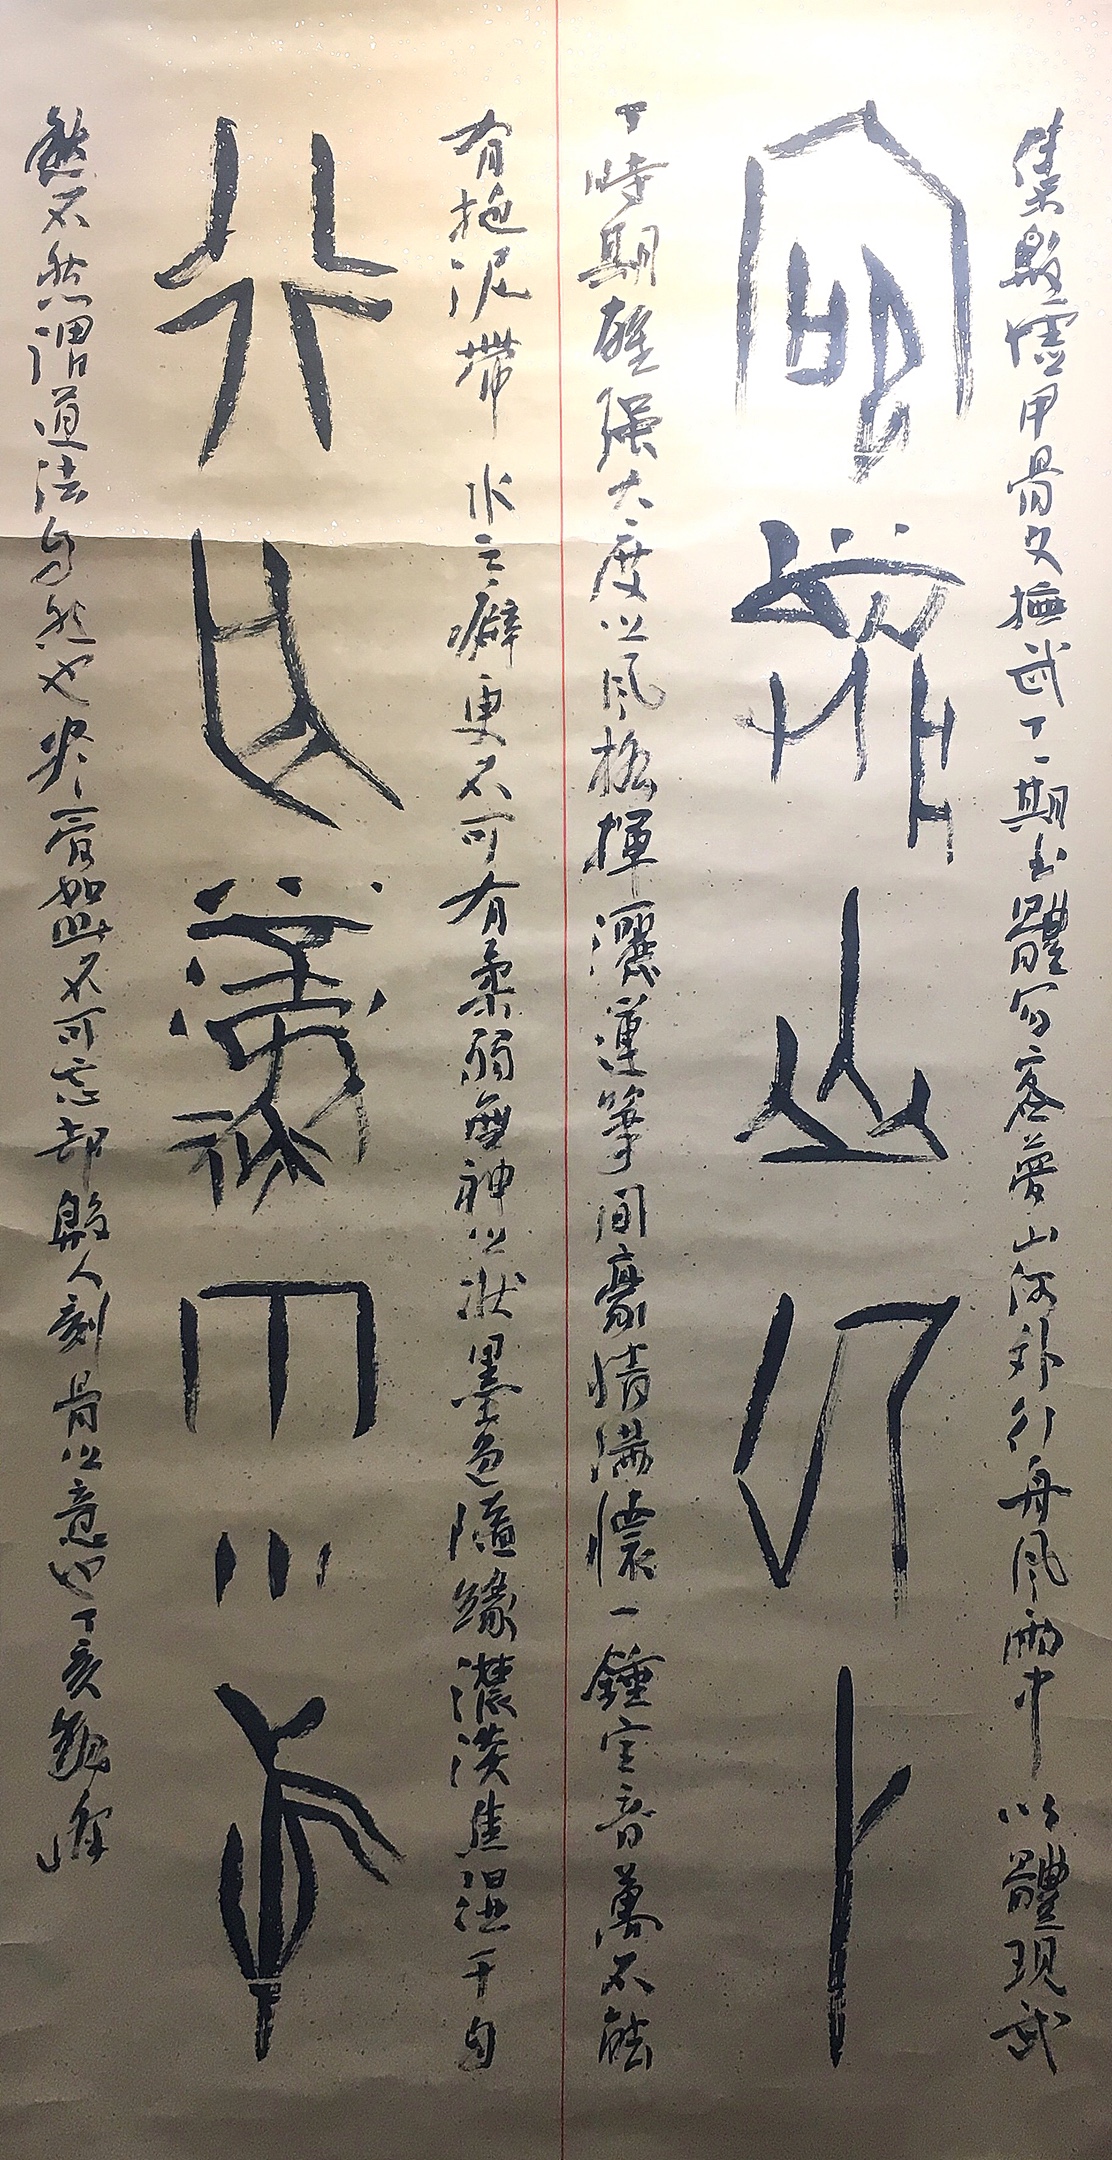 集殷虛甲骨文撫武丁一期書體寫客夢山河外行舟風雨中以體現武
客夢山河外
丁時期雄强大度以風格揮灑運筆間豪情滿懷一錘定音萬不能
有拖泥帶水之癖更不可有柔弱無神以狀墨色隨緣濃淡焦湿干自
行舟風雨中
然不然謂道法自然也崇爱如此不可忘却殷人刻骨以意也丁亥